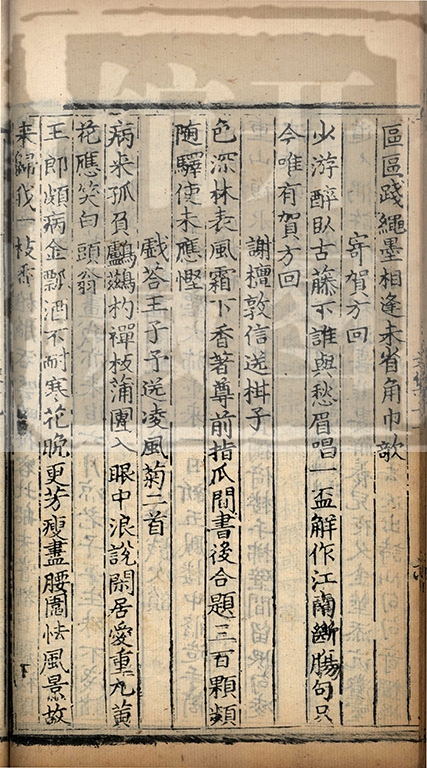 區區踐繩墨相逢未省角巾欹
寄賀方回
少游醉臥古藤下誰與愁眉唱一盃解作江南斷腸句只
今唯有賀方回
謝檀敦信送柑子
色深林表風霜下香著尊前指爪間書後合題三百顆頻
随驛使未應慳
戯荅王子予送凌風菊二首
病来孤負鸕鷀杓禪板蒲團入眼中浪說閑居愛重九黃
花應笑白頭翁
王郎頗病金瓢酒不耐寒花晚更芳瘦盡腰圍怯風景故
来歸我一枝香